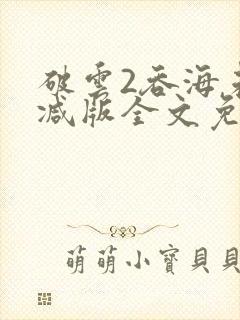 破雲2吞海
減版全文免
萌萌小寶貝貝